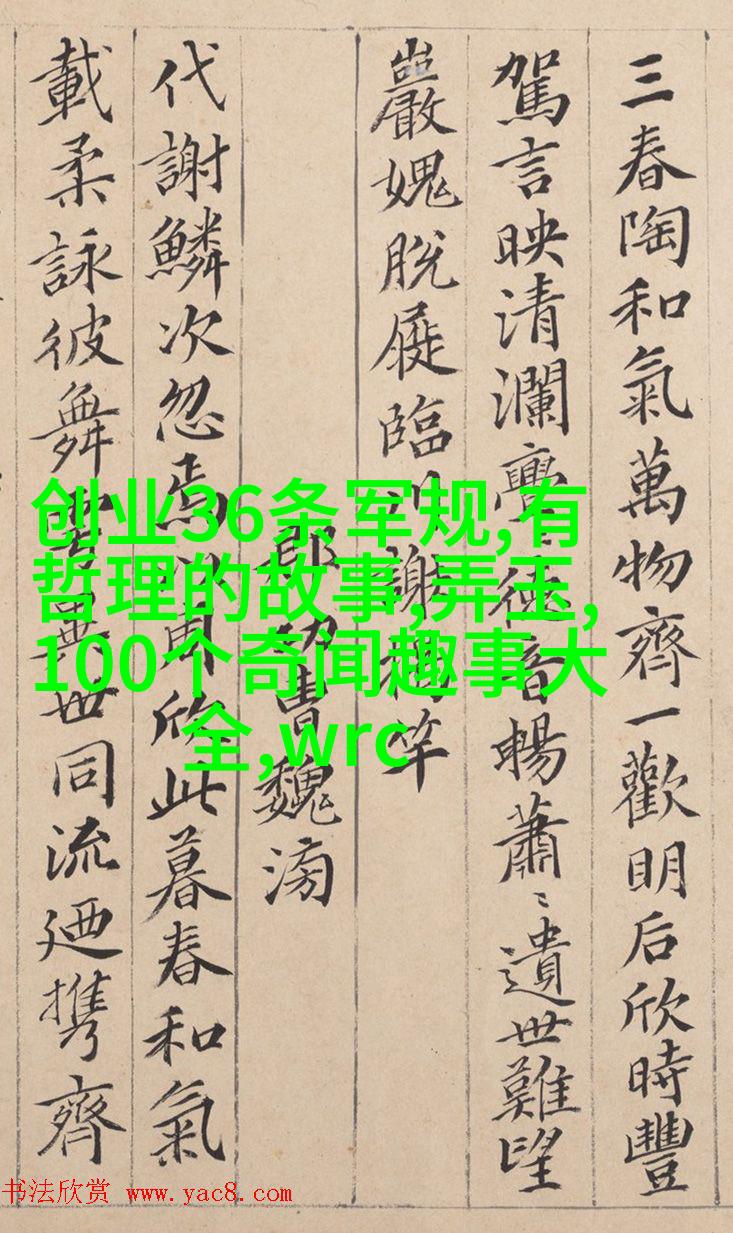 三春陶和氣萬物齊一歡明后欣時豐
駕言映清瀾亹〻德音暢蕭〻遺世難望
巖愧脫屣臨川謝揭竿
郡功曹魏滂
代謝鱗次忽焉以周欣此暮春和氣
載柔詠彼舞雩異世同流廼携齊
创业36条军规,有
哲理的故事,弄玉,
100个奇闻趣事大
全,wrc
书法欣赏 www.yac8.com